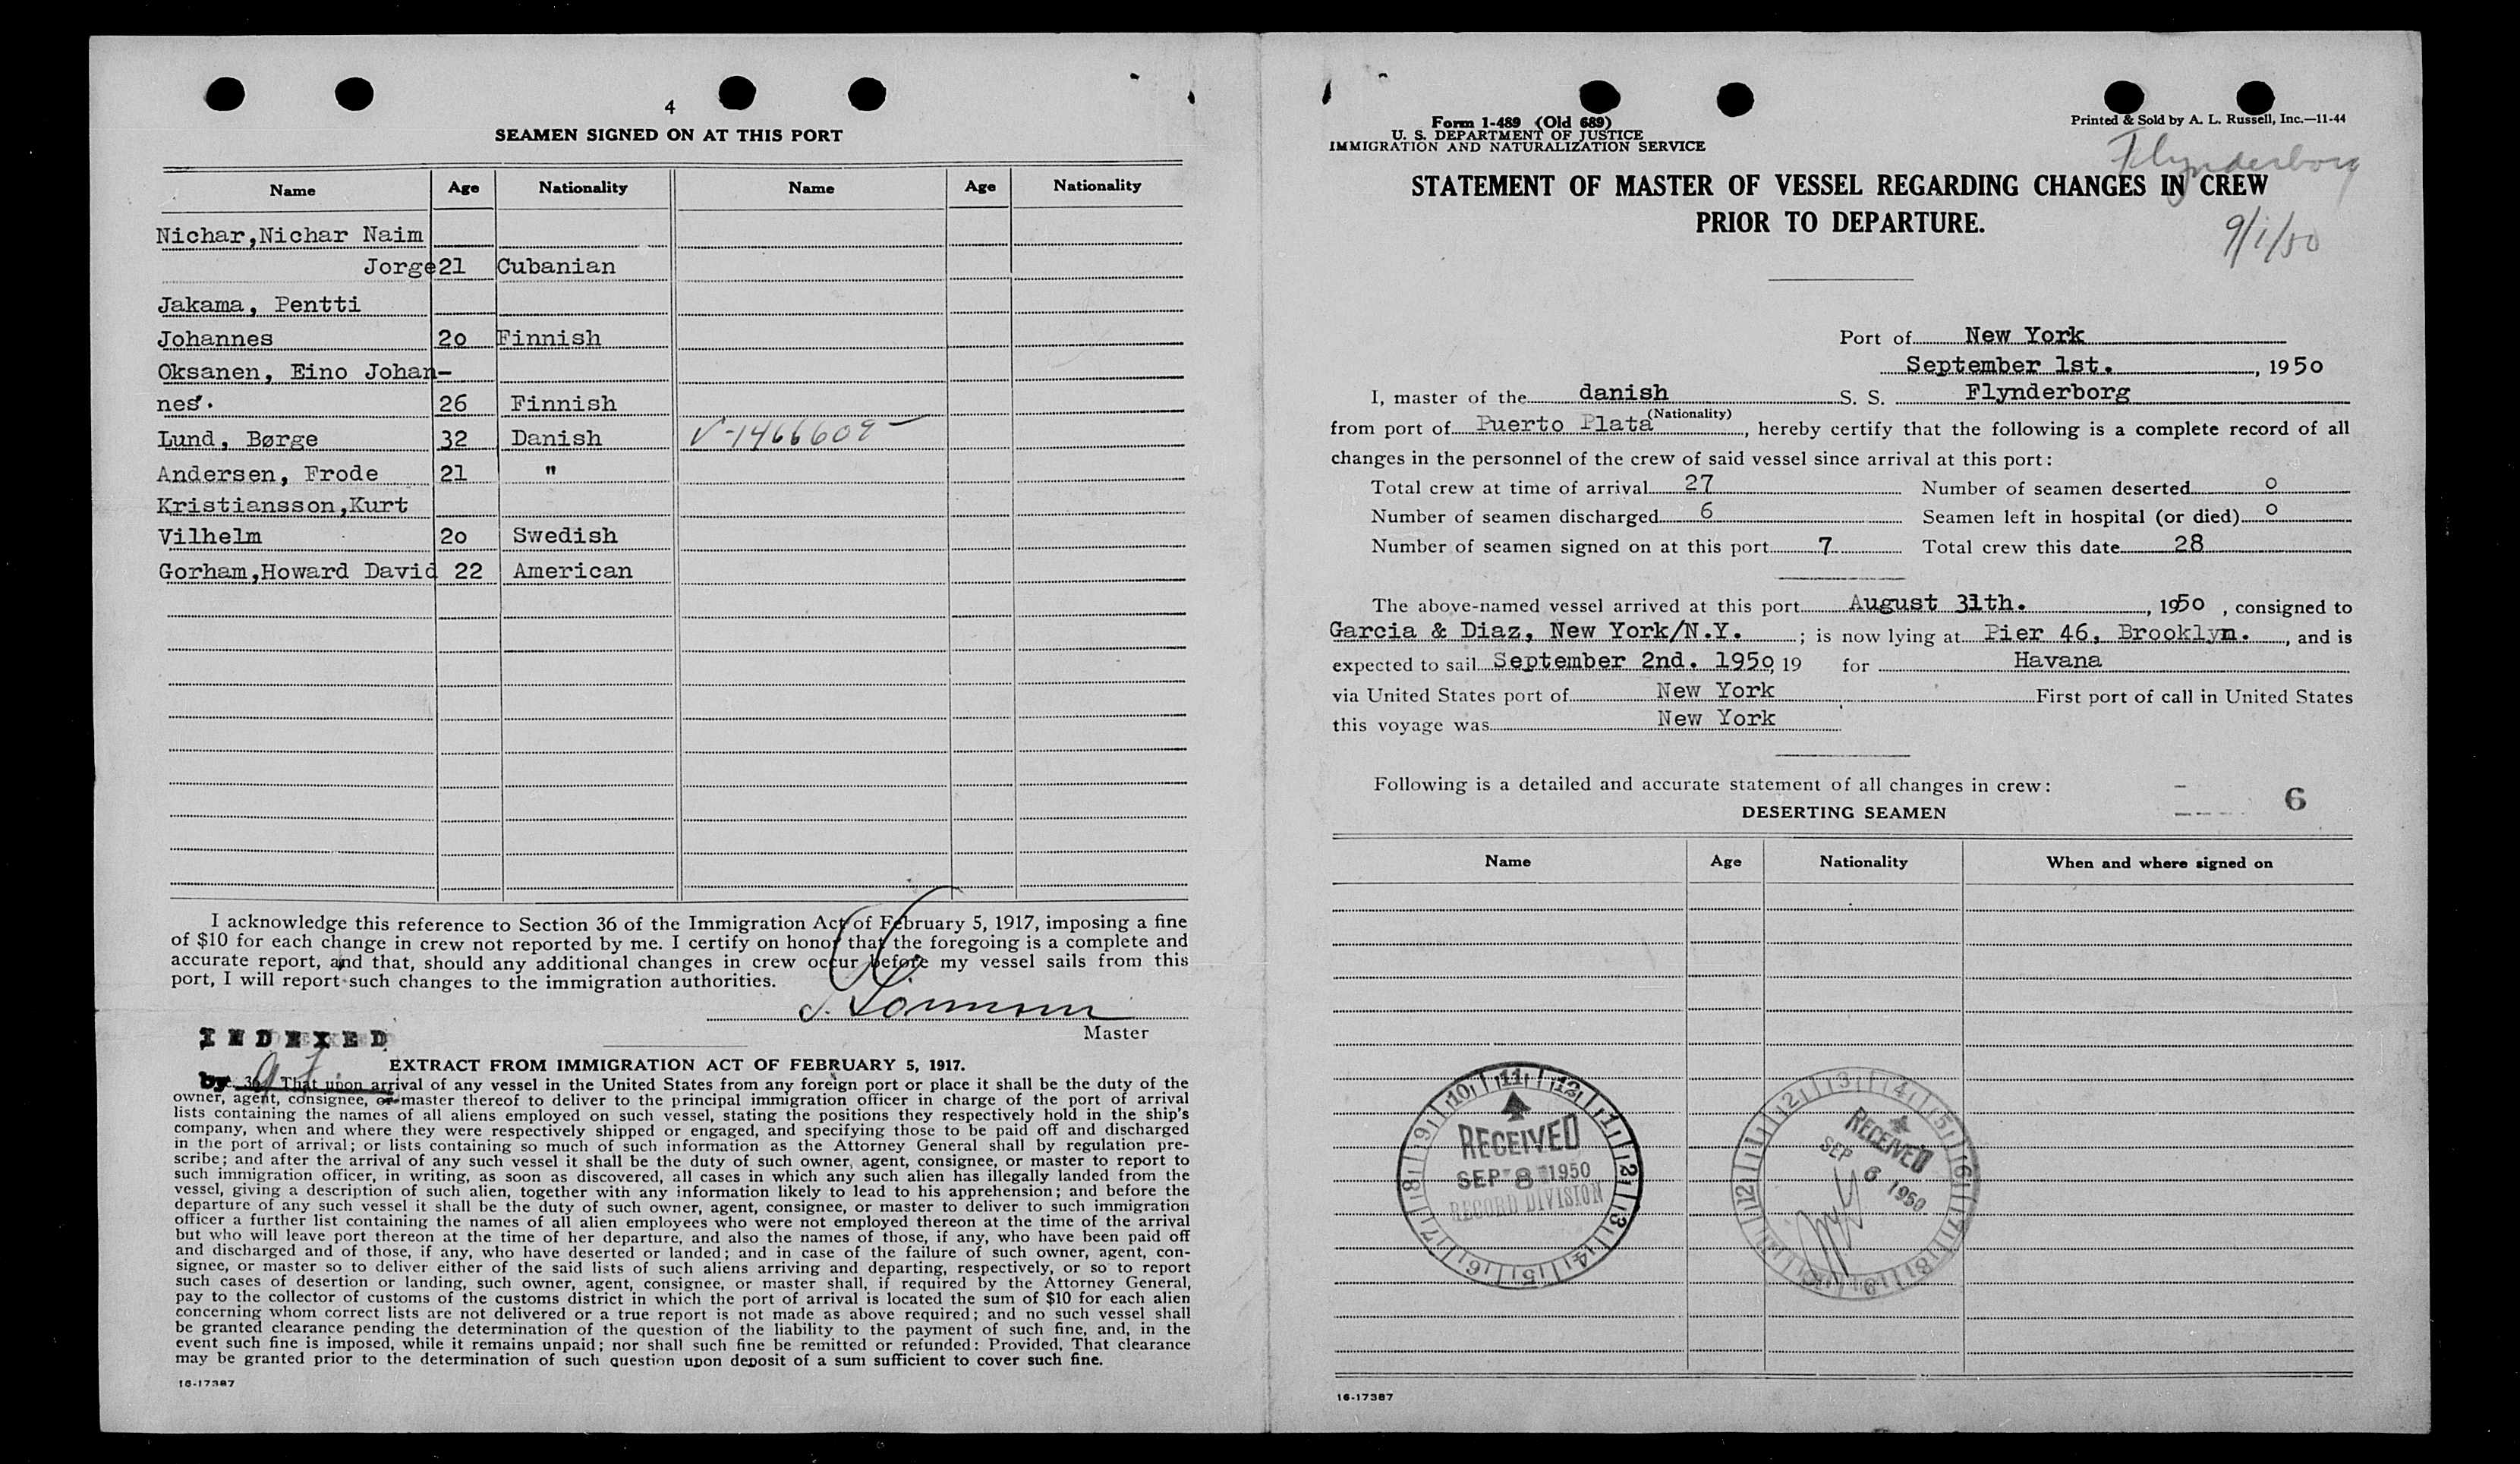 4
SEAMEN SIGNED ON AT THIS PORT
Name Age Nationality Name Age Nationality
Nichar,Nichar Naim
Jorge 21 Cubanian
Jakama, Pentti
Johannes 2o Finnish
Oksanen, Eino Johan-
nes. 26 Finnish
Lund, Børge 32 Danish V-1466609
Andersen, Frode 21 "
Kristiansson,Kurt
Vilhelm 2o Swedish
Gorham,Howard David 22 American
I acknowledge this reference to Section 36 of the Immigration Act of February 5, 1917, imposing a fine
of $10 for each change in crew not reported by me. I certify on honor that the foregoing is a complete and
accurate report, and that, should any additional changes in crew occur before my vessel sails from this
port, I will report such changes to the immigration authorities.
Master
INDEXED
EXTRACT FROM IMMIGRATION ACT OF FEBRUARY 5, 1917.
by 36. That upon arrival of any vessel in the United States from any foreign port or place it shall be the duty of the
owner, agent, consignee, or master thereof to deliver to the principal immigration officer in charge of the port of arrival
lists containing the names of all aliens employed on such vessel, stating the positions they respectively hold in the ship's
company, when and where they were respectively shipped or engaged, and specifying those to be paid off and discharged
in the port of arrival; or lists containing so much of such information as the Attorney General shall by regulation pre-
scribe; and after the arrival of any such vessel it shall be the duty of such owner, agent, consignee, or master to report to
such immigration officer, in writing, as soon as discovered, all cases in which any such alien has illegally landed from the
vessel, giving a description of such alien, together with any information likely to lead to his apprehension; and before the
departure of any such vessel it shall be the duty of such owner, agent, consignee, or master to deliver to such immigration
officer a further list containing the names of all alien employees who were not employed thereon at the time of the arrival
but who will leave port thereon at the time of her departure, and also the names of those, if any, who have been paid off
and discharged and of those, if any, who have deserted or landed; and in case of the failure of such owner, agent, con-
signee, or master so to deliver either of the said lists of such aliens arriving and departing, respectively, or so to report
such cases of desertion or landing, such owner, agent, consignee, or master shall, if required by the Attorney General,
pay to the collector of customs of the customs district in which the port of arrival is located the sum of $10 for each alien
concerning whom correct lists are not delivered or a true report is not made as above required; and no such vessel shall
be granted clearance pending the determination of the question of the liability to the payment of such fine, and, in the
event such fine is imposed, while it remains unpaid; nor shall such fine be remitted or refunded: Provided, That clearance
may be granted prior to the determination of such question upon deposit of a sum sufficient to cover such fine.
16-17387
Form 1-489 (Old 689)
U. S. DEPARTMENT OF JUSTICE
IMMIGRATION AND NATURALIZATION SERVICE
Printed & Sold by A. L. Russell, Inc.—11-44
Flynderborg
STATEMENT OF MASTER OF VESSEL REGARDING CHANGES IN CREW
PRIOR TO DEPARTURE.
9/1/50
Port of New York
September 1st. , 195o
I, master of the danish S. S. Flynderborg
(Nationality)
from port of Puerto Plata, hereby certify that the following is a complete record of all
changes in the personnel of the crew of said vessel since arrival at this port:
Total crew at time of arrival 27 Number of seamen deserted o
Number of seamen discharged 6 Seamen left in hospital (or died) o
Number of seamen signed on at this port 7 Total crew this date 28
The above-named vessel arrived at this port August 31th. , 195o , consigned to
Garcia & Diaz, New York/N.Y. ; is now lying at Pier 46, Brooklyn. , and is
expected to sail September 2nd. 195o, 19 for Havana
via United States port of New York First port of call in United States
this voyage was New York
Following is a detailed and accurate statement of all changes in crew:
6
DESERTING SEAMEN
Name Age Nationality When and where signed on
RECEIVED
SEP 8 1950
RECORD DIVISION
RECEIVED
SEP 6 1950
16-17387